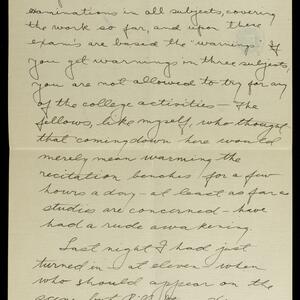 examinations in all subjects, covering
the work so far, and upon these
exam's are based the "warnings". If
you get warnings in three subjects,
you are not allowed to try for any
of the college activities — The
fellows, like myself, who thought
that coming down here would
merely mean warming the
recitation benches for a few
hours a day – at least as far as
studies are concerned – have
had a rude awakening.
Last night I had just
turned in – at eleven – when
who should appear on the
scene but